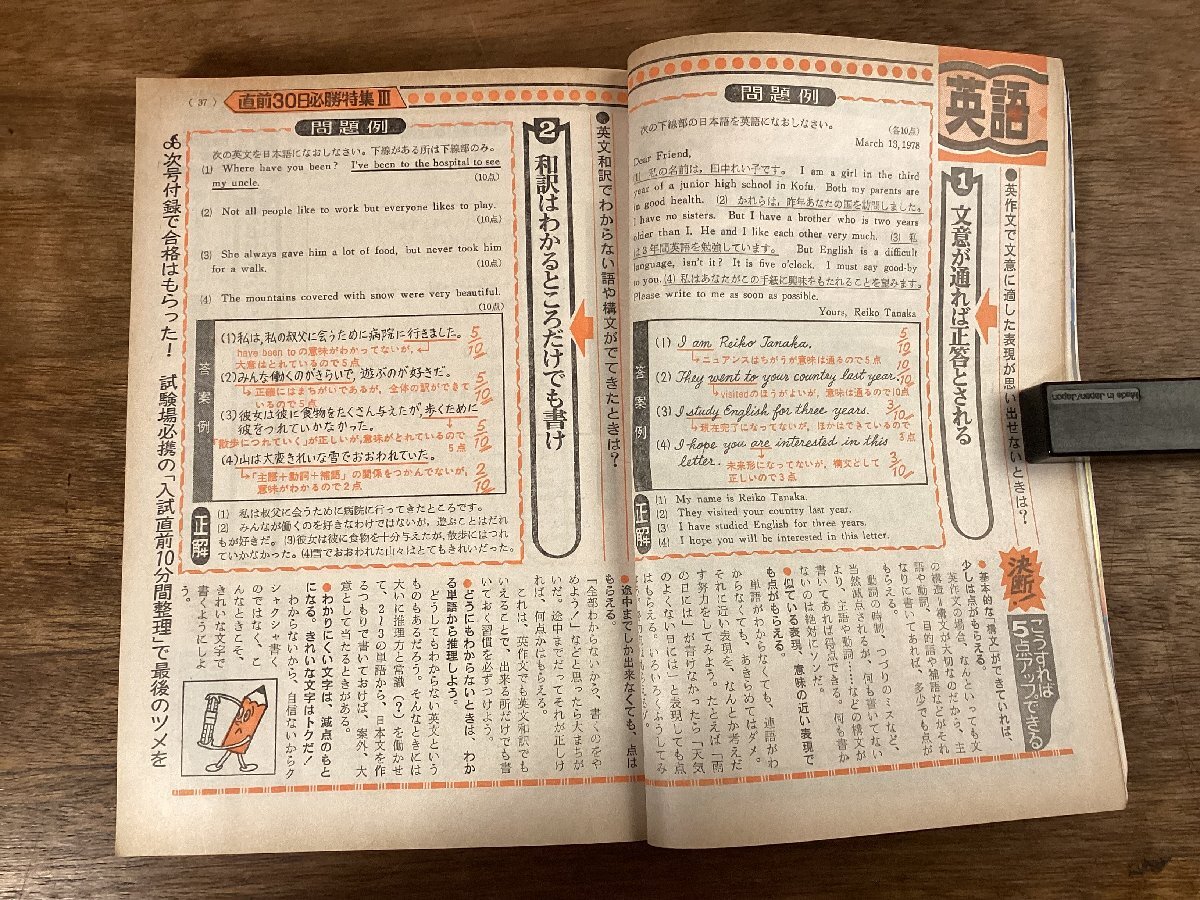 英語
●英作文で文意に適した表現が思い出せないときは?
1 文意が通れば正答とされる
問題例
次の下線部の日本語を英語になおしなさい。
(各10点)
March 13, 1978
Dear Friend,
(1) 私の名前は,田中れい子です。 I am a girl in the third
year of a junior high school in Kofu. Both my parents are
in good health. (2) かれらは,昨年あなたの国を訪問しました。
I have no sisters. But I have a brother who is two years
older than I. He and I like each other very much. (3) 私
は3年間英語を勉強しています。 But English is a difficult
language, isn't it? It is five o'clock. I must say good-by
to you. (4) 私はあなたがこの手紙に興味をもたれることを望みます。
Please write to me as soon as possible.
Yours, Reiko Tanaka
答案例
(1) I am Reiko Tanaka.
5/10
→ニュアンスはちがうが意味は通るので5点
(2) They went to your country last year.
10/10
→visitedのほうがよいが,意味は通るので10点
(3) I study English for three years.
3/10
→現在完了になってないが,ほかはできているので
3点
(4) I hope you are interested in this
letter.
3/10
→未来形になってないが,構文として
正しいので3点
正解
(1) My name is Reiko Tanaka.
(2) They visited your country last year.
(3) I have studied English for three years.
(4) I hope you will be interested in this letter.
決断!
こうすれば
5点アップできる
●基本的な「構文」ができていれば、
少しは点がもらえる。
英作文の場合、なんといっても文
の構造=構文が大切なのだから、主
語や動詞、目的語や補語などがそれ
なりに書いてあれば、多少でも点が
もらえる。
動詞の時制、つづりのミスなど、
当然減点されるが、何も書いてない
より、主語や動詞……などの構文が
書いてあれば得点できる。何も書か
ないのは絶対にソンだ。
●似ている表現、意味の近い表現で
も点がもらえる。
単語がわからなくても、連語がわ
からなくても、あきらめてはダメ。
それに近い表現を、なんとか考えだ
す努力をしてみよう。たとえば「雨
の日には」が書けなかったら「天気
のよくない日には」と表現しても点
はもらえる。いろいろくふうしてみ
( 37 )
直前30日必勝特集III
●英文和訳でわからない語や構文がでてきたときは?
2 和訳はわかるところだけでも書け
問題例
次の英文を日本語になおしなさい。下線がある所は下線部のみ。
(1) Where have you been? I've been to the hospital to see
my uncle.
(10点)
(2) Not all people like to work but everyone likes to play.
(10点)
(3) She always gave him a lot of food, but never took him
for a walk.
(10点)
(4) The mountains covered with snow were very beautiful.
(10点)
答案例
(1)私は,私の叔父に会うために病院に行きました。
5/10
have been toの意味がわかってないが,
大意はとれているので5点
(2)みんな働くのがきらいで,遊ぶのが好きだ。
5/10
→正確にはまちがいであるが,全体の訳ができて
いるので5点
(3)彼女は彼に食物をたくさん与えたが,歩くために
彼をつれていかなかった。
5/10
「散歩につれていく」が正しいが,意味がとれているので
5点
(4)山は大変きれいな雪でおおわれていた。
2/10
→「主語+動詞+補語」の関係をつかんでないが,
意味がわかるので2点
正解
(1) 私は叔父に会うために病院に行ってきたところです。
(2) みんなが働くのを好きなわけではないが,遊ぶことはだれ
もが好きだ。(3)彼女は彼に食物を十分与えたが,散歩にはつれ
ていかなかった。(4)雪でおおわれた山々はとてもきれいだった。
●途中までしか出来なくても、点は
もらえる。
「全部わからないから、書くのをや
めよう!」などと思ったら大まちが
いだ。途中まででだってそれが正しけ
れば、何点かはもらえる。
これは、英作文でも英文和訳でも
いえることで、出来る所だけでも書
いておく習慣を必ずつけよう。
●どうにもわからないときは、わか
る単語から推理しよう。
どうしてもわからない英文という
ものもあるだろう。そんなときには
大いに推理力と常識(?)を働かせ
て、2〜3の単語から、日本文を作
るつもりで書いておけば、案外、大
意として当たるときがある。
●わかりにくい文字は、減点のもと
になる。きれいな文字はトクだ!
わからないから、自信ないからク
シャクシャ書く
のではなく、こ
んなときこそ、
きれいな文字で
書くようにしよ
う。
次号付録で合格はもらった! 試験場必携の「入試直前10分間整理」で最後のツメを
Made in Japan/Japon